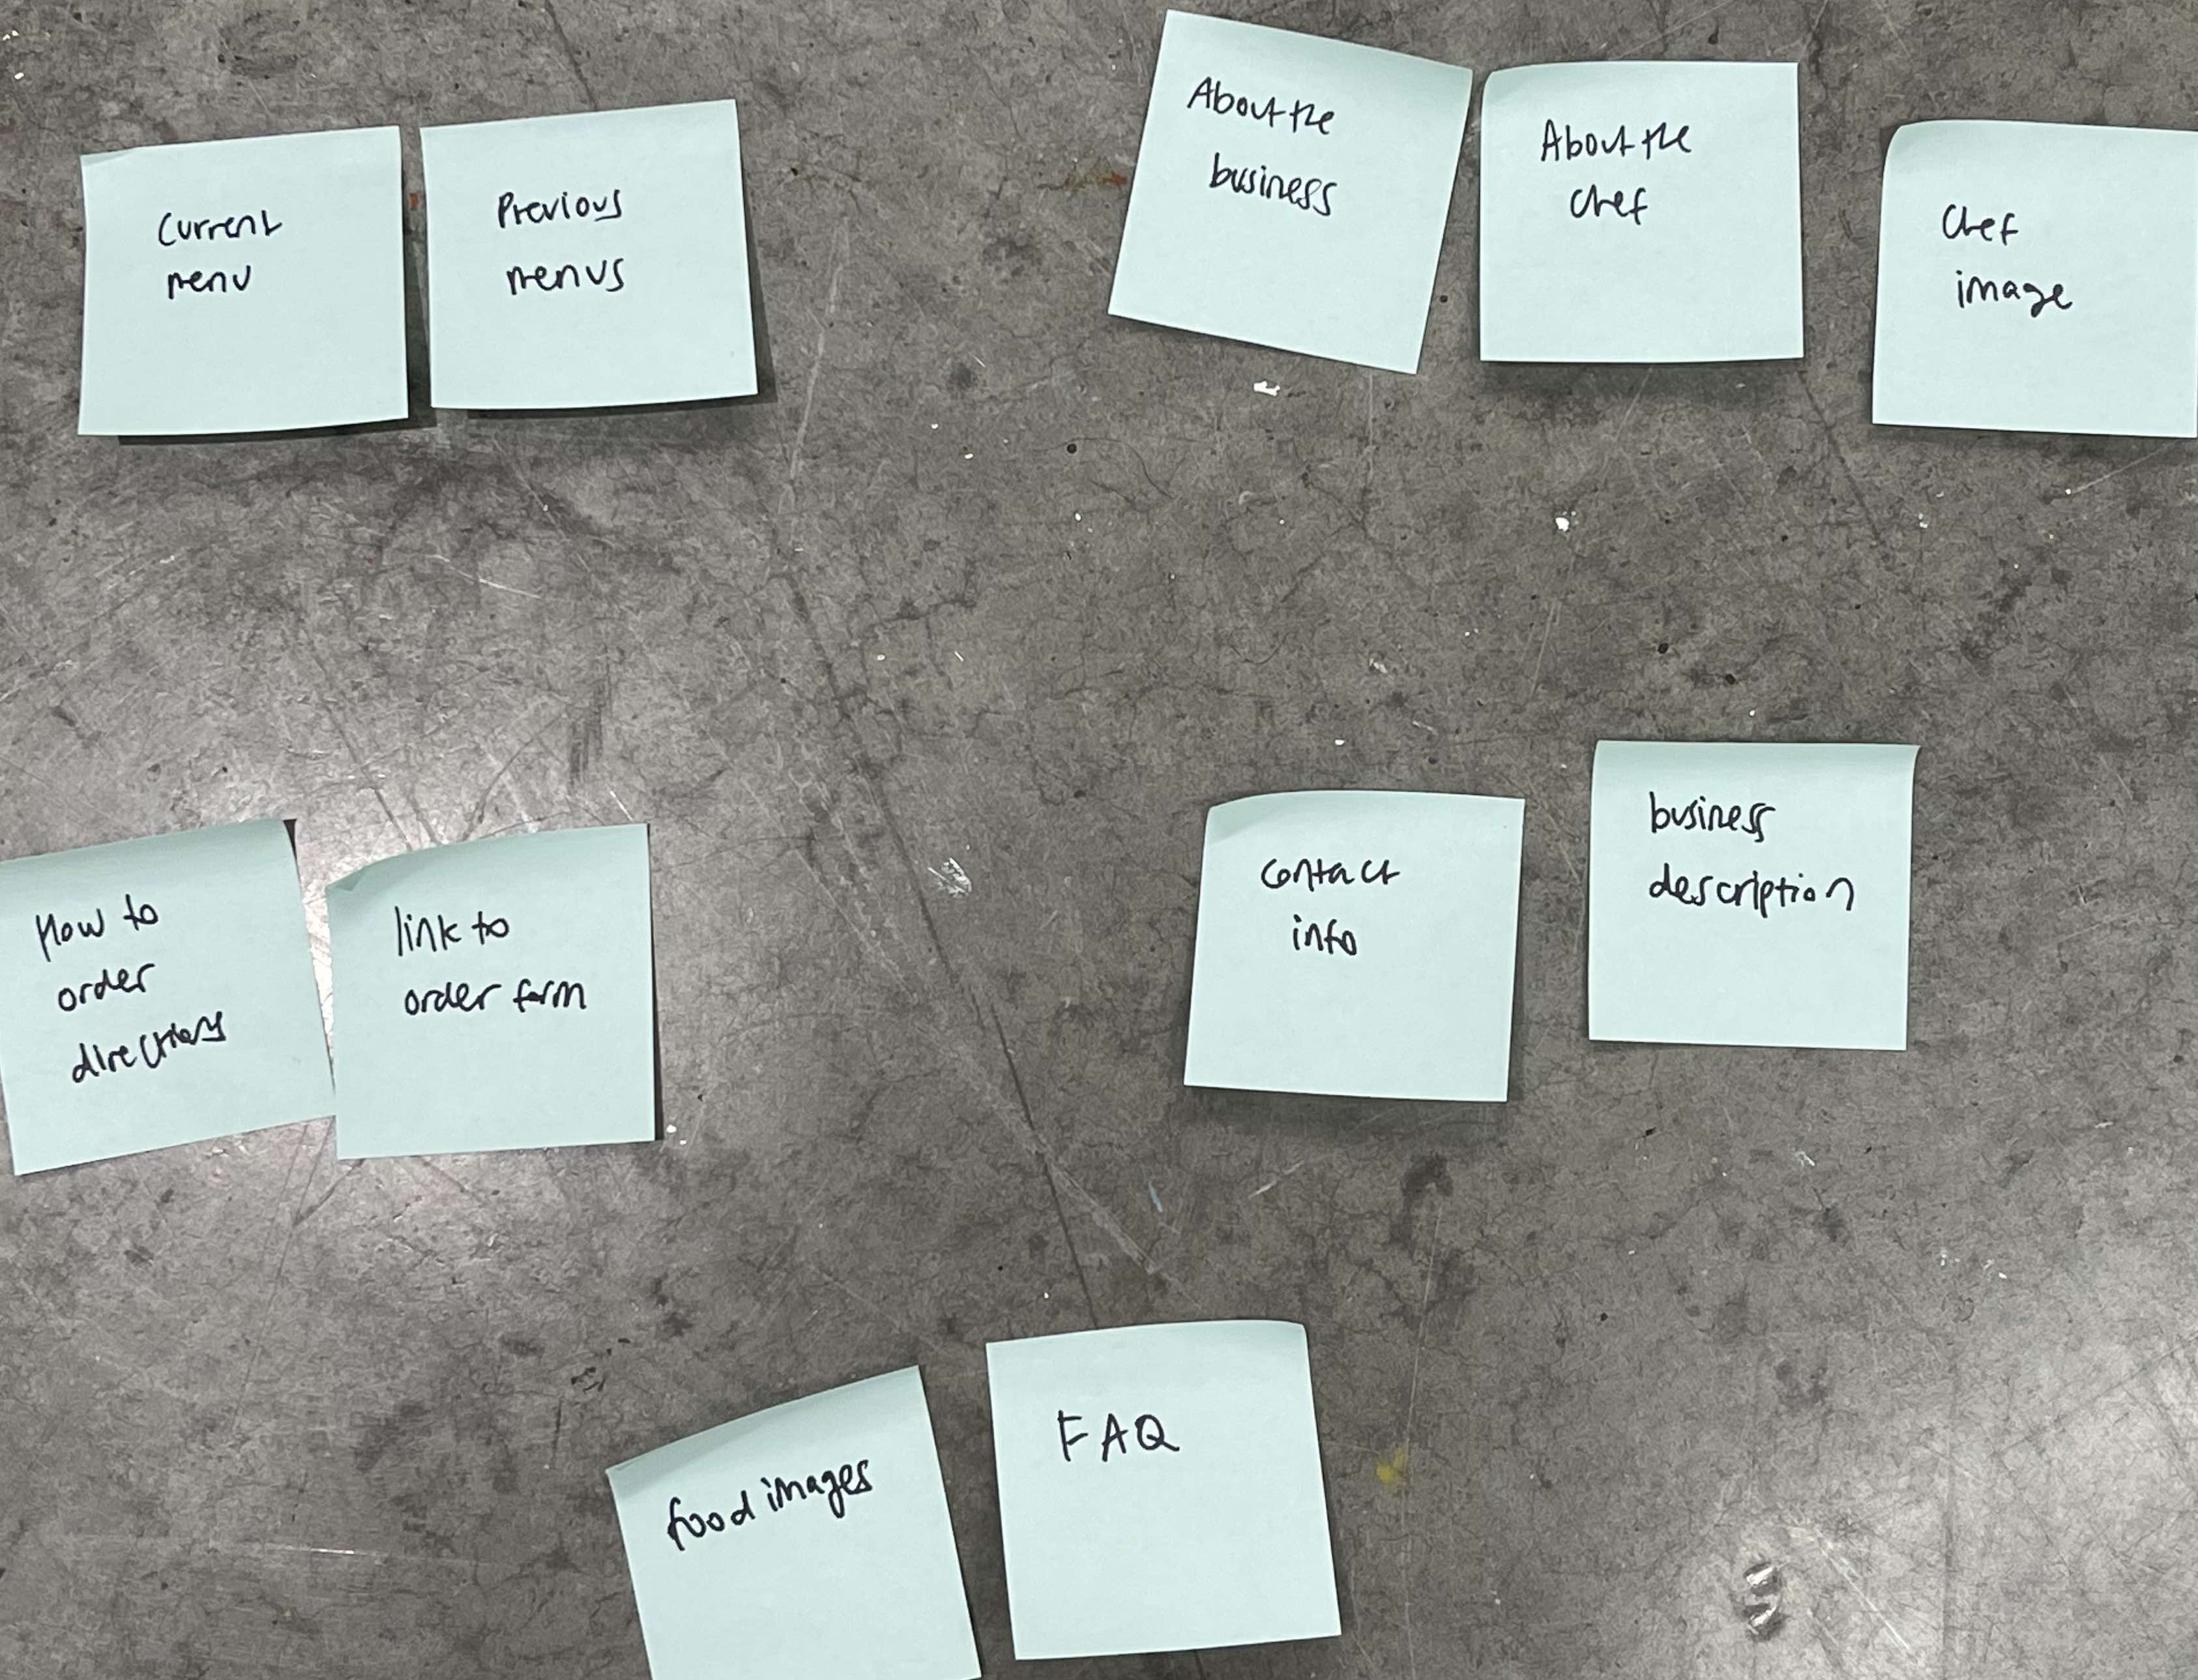 Current
menu
Previous
menus
About the
business
About the
chef
Chef
image
How to
order
directions
link to
order form
contact
info
business
description
food images
FAQ